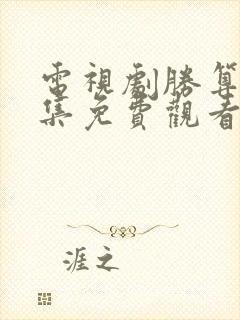 電視劇勝算
集免費觀看
涯之